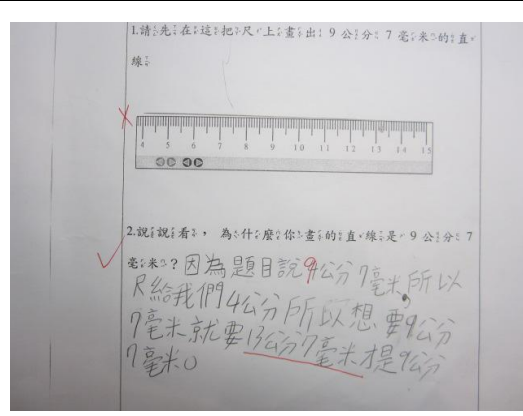 1.請先在這把尺上畫出 9 公分 7 毫米的直
線。
4 5 6 7 8 9 10 11 12 13 14 15
2.說說看，為什麼你畫的直線是 9 公分 7
毫米？因為題目說9公分7毫米所以
尺給我們4公分所以想要9公分
7毫米就要13公分7毫米才是9公分
7毫米。